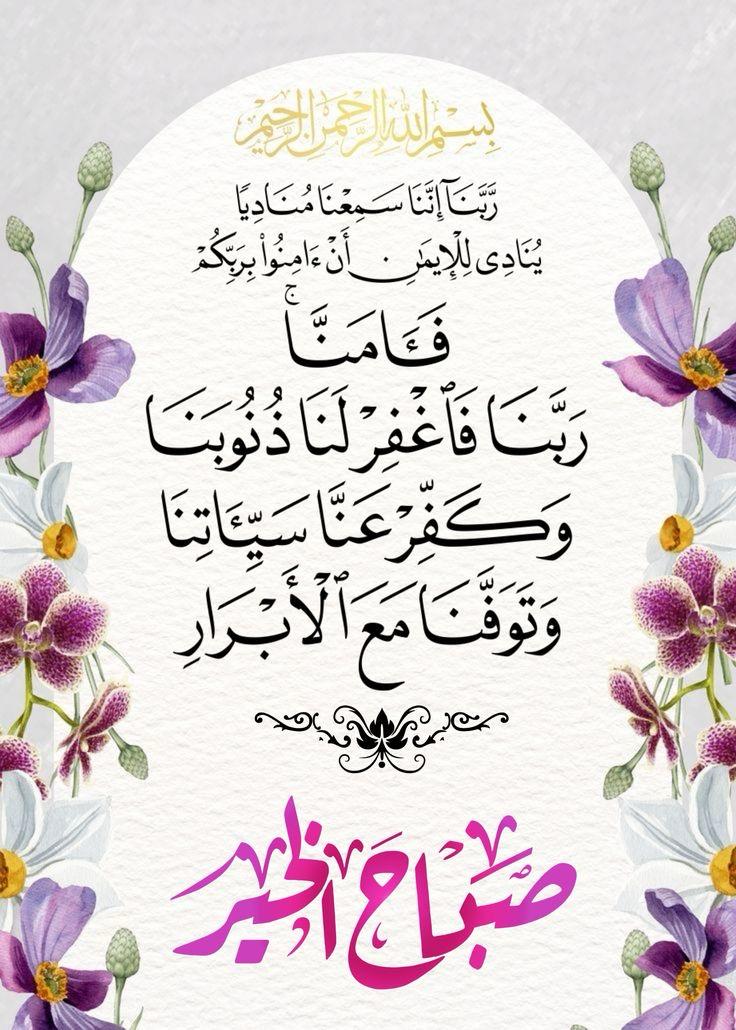 بِسْمِ اللهِ الرَّحْمنِ الرَّحِيْمِ
رَّبَّنَآ إِنَّنَا سَمِعْنَا مُنَادِيًا
يُنَادِى لِلْإِيمَٰنِ أَنْ ءَامِنُوا۟ بِرَبِّكُمْ
فَـَٔامَنَّا ۚ
رَبَّنَا فَٱغْفِرْ لَنَا ذُنُوبَنَا
وَكَفِّرْ عَنَّا سَيِّـَٔاتِنَا
وَتَوَفَّنَا مَعَ ٱلْأَبْرَارِ
صَبَاحَ الخير